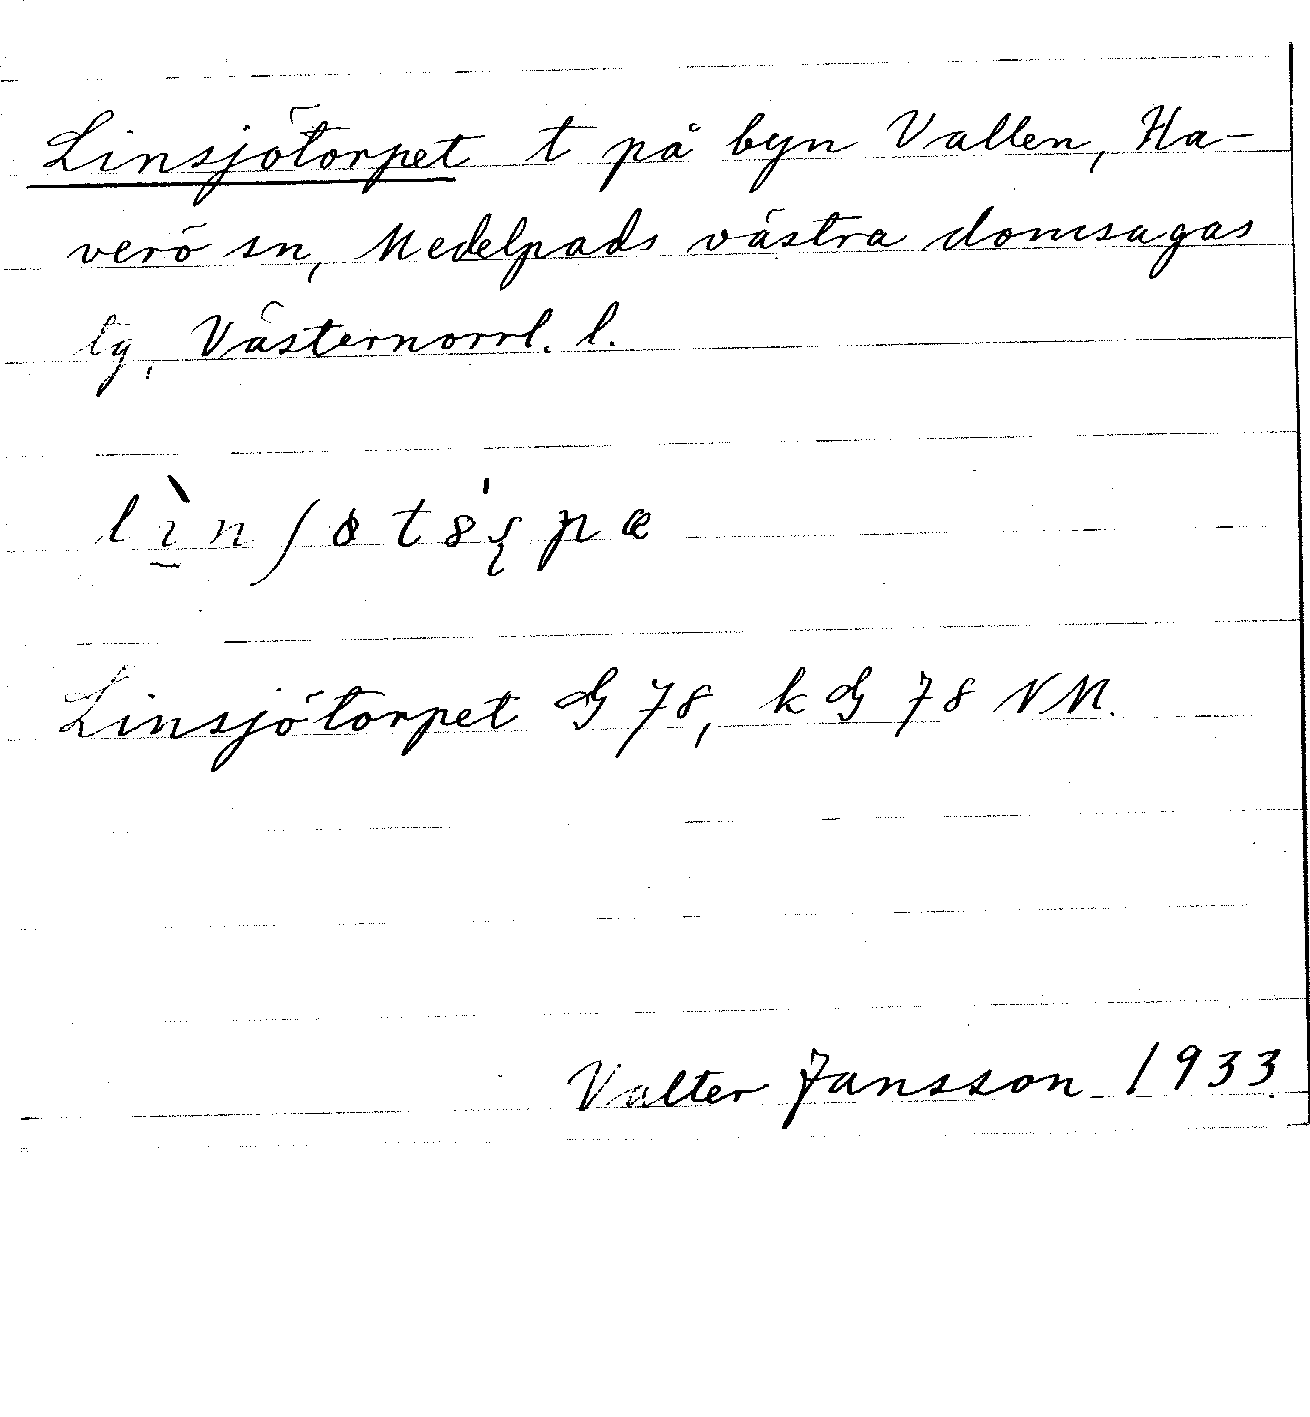 Linsjötorpet t på byn Vallen, Ha-
verö sn, Medelpads västra domsagas
tg, Västernorrl. l.
Linsjötorpet G 78, k G 78 NM.
Valter Jansson 1933.